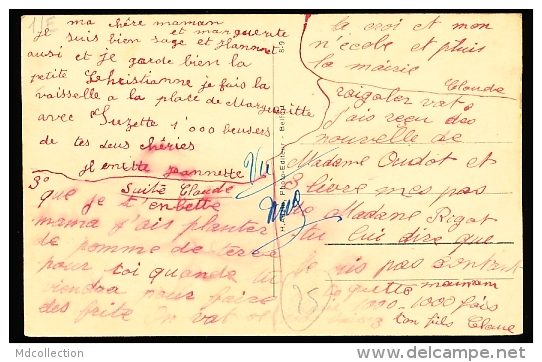 ma chère maman
je suis bien sage et Jeannette
et marguerite
aussi et je garde bien la
petite Chritianne je fais la
vaisselle a la place de Marguerite
avec Suzette 1'000 beusers
de tes deux chéries
Jeannette
3°
Suite Claude
que je t'enbette
mama j'ais planter
de pomme de terre
pour toi quande tu
viendra pour faire
des frite on vat
la croi et mon
n'école et pluis
la mairie
Claude
rigoler vat
j'ais reçu des
nouvelle de
Madame Oudot et
3 livre mes pas
de Madame Rigot
tu lui dire que
je suis pas contant
maman
1000-1000 fois
ton fils Claue
Vu
8-9
25
MDCollection
delcampe.net